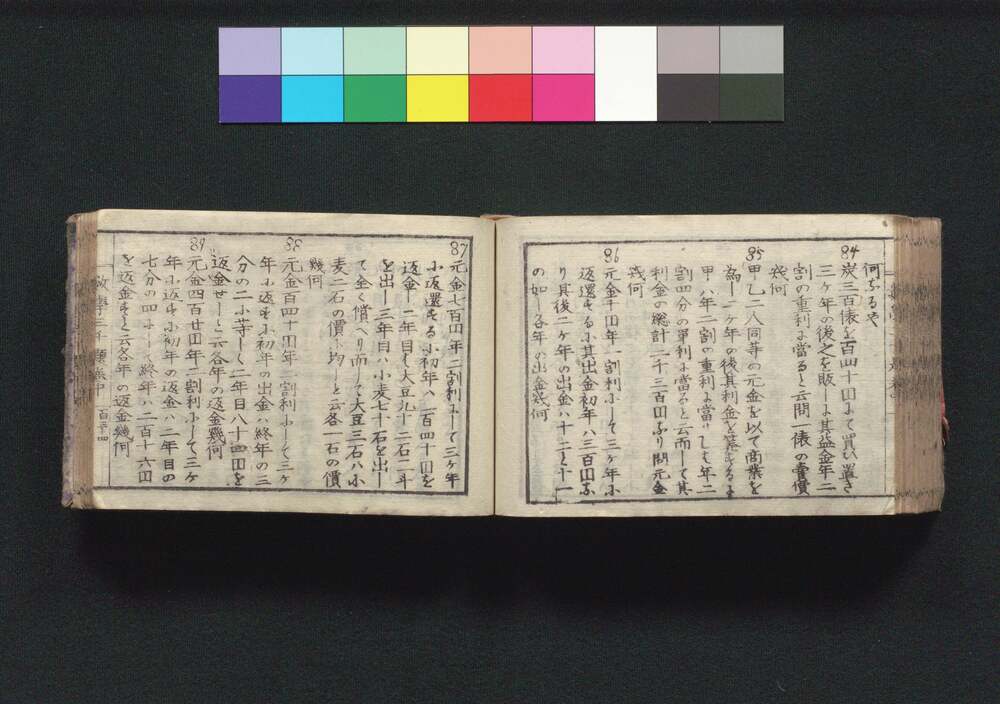 何なるや
84
炭三百俵を百四十円にて買ひ置き
三ヶ年の後之を販しに其益金年二
割の重利に當ると云問一俵の賣價
幾何
85
甲乙二人同等の元金を以て商業を
為し二ヶ年の後其利金を算するに
甲ハ年二割の重利に當り乙も年二
割四分の單利に當ると云而して其
利金の総計二千三百円なり問元金
幾何
86
元金千円年一割利にして三ヶ年に
返還するに其出金初年ハ三百円に
り其後二ヶ年の出金ハ十二と十一
の如し各年の出金幾何
87
元金七百円年二割利にして三ヶ年
に返還するに初年ハ二百四十円を
返金し二年目は大豆九十二石二斗
を出し三年目ハ小麦七十石を出し
て全く償へり而して大豆三石ハ小
麦二石の價に均しと云各一石の價
幾何
88
元金百四十円年二割利にして三ヶ
年に返す初年の出金ハ終年の三
分の二に等しく二年目八十四円を
返金せしと云各年の返金幾何
89
元金四百廿円年二割利にして三ヶ
年に返す初年の返金ハ二年目の
七分の四にして終年ハ二百十六円
を返金すと云各年の返金幾何